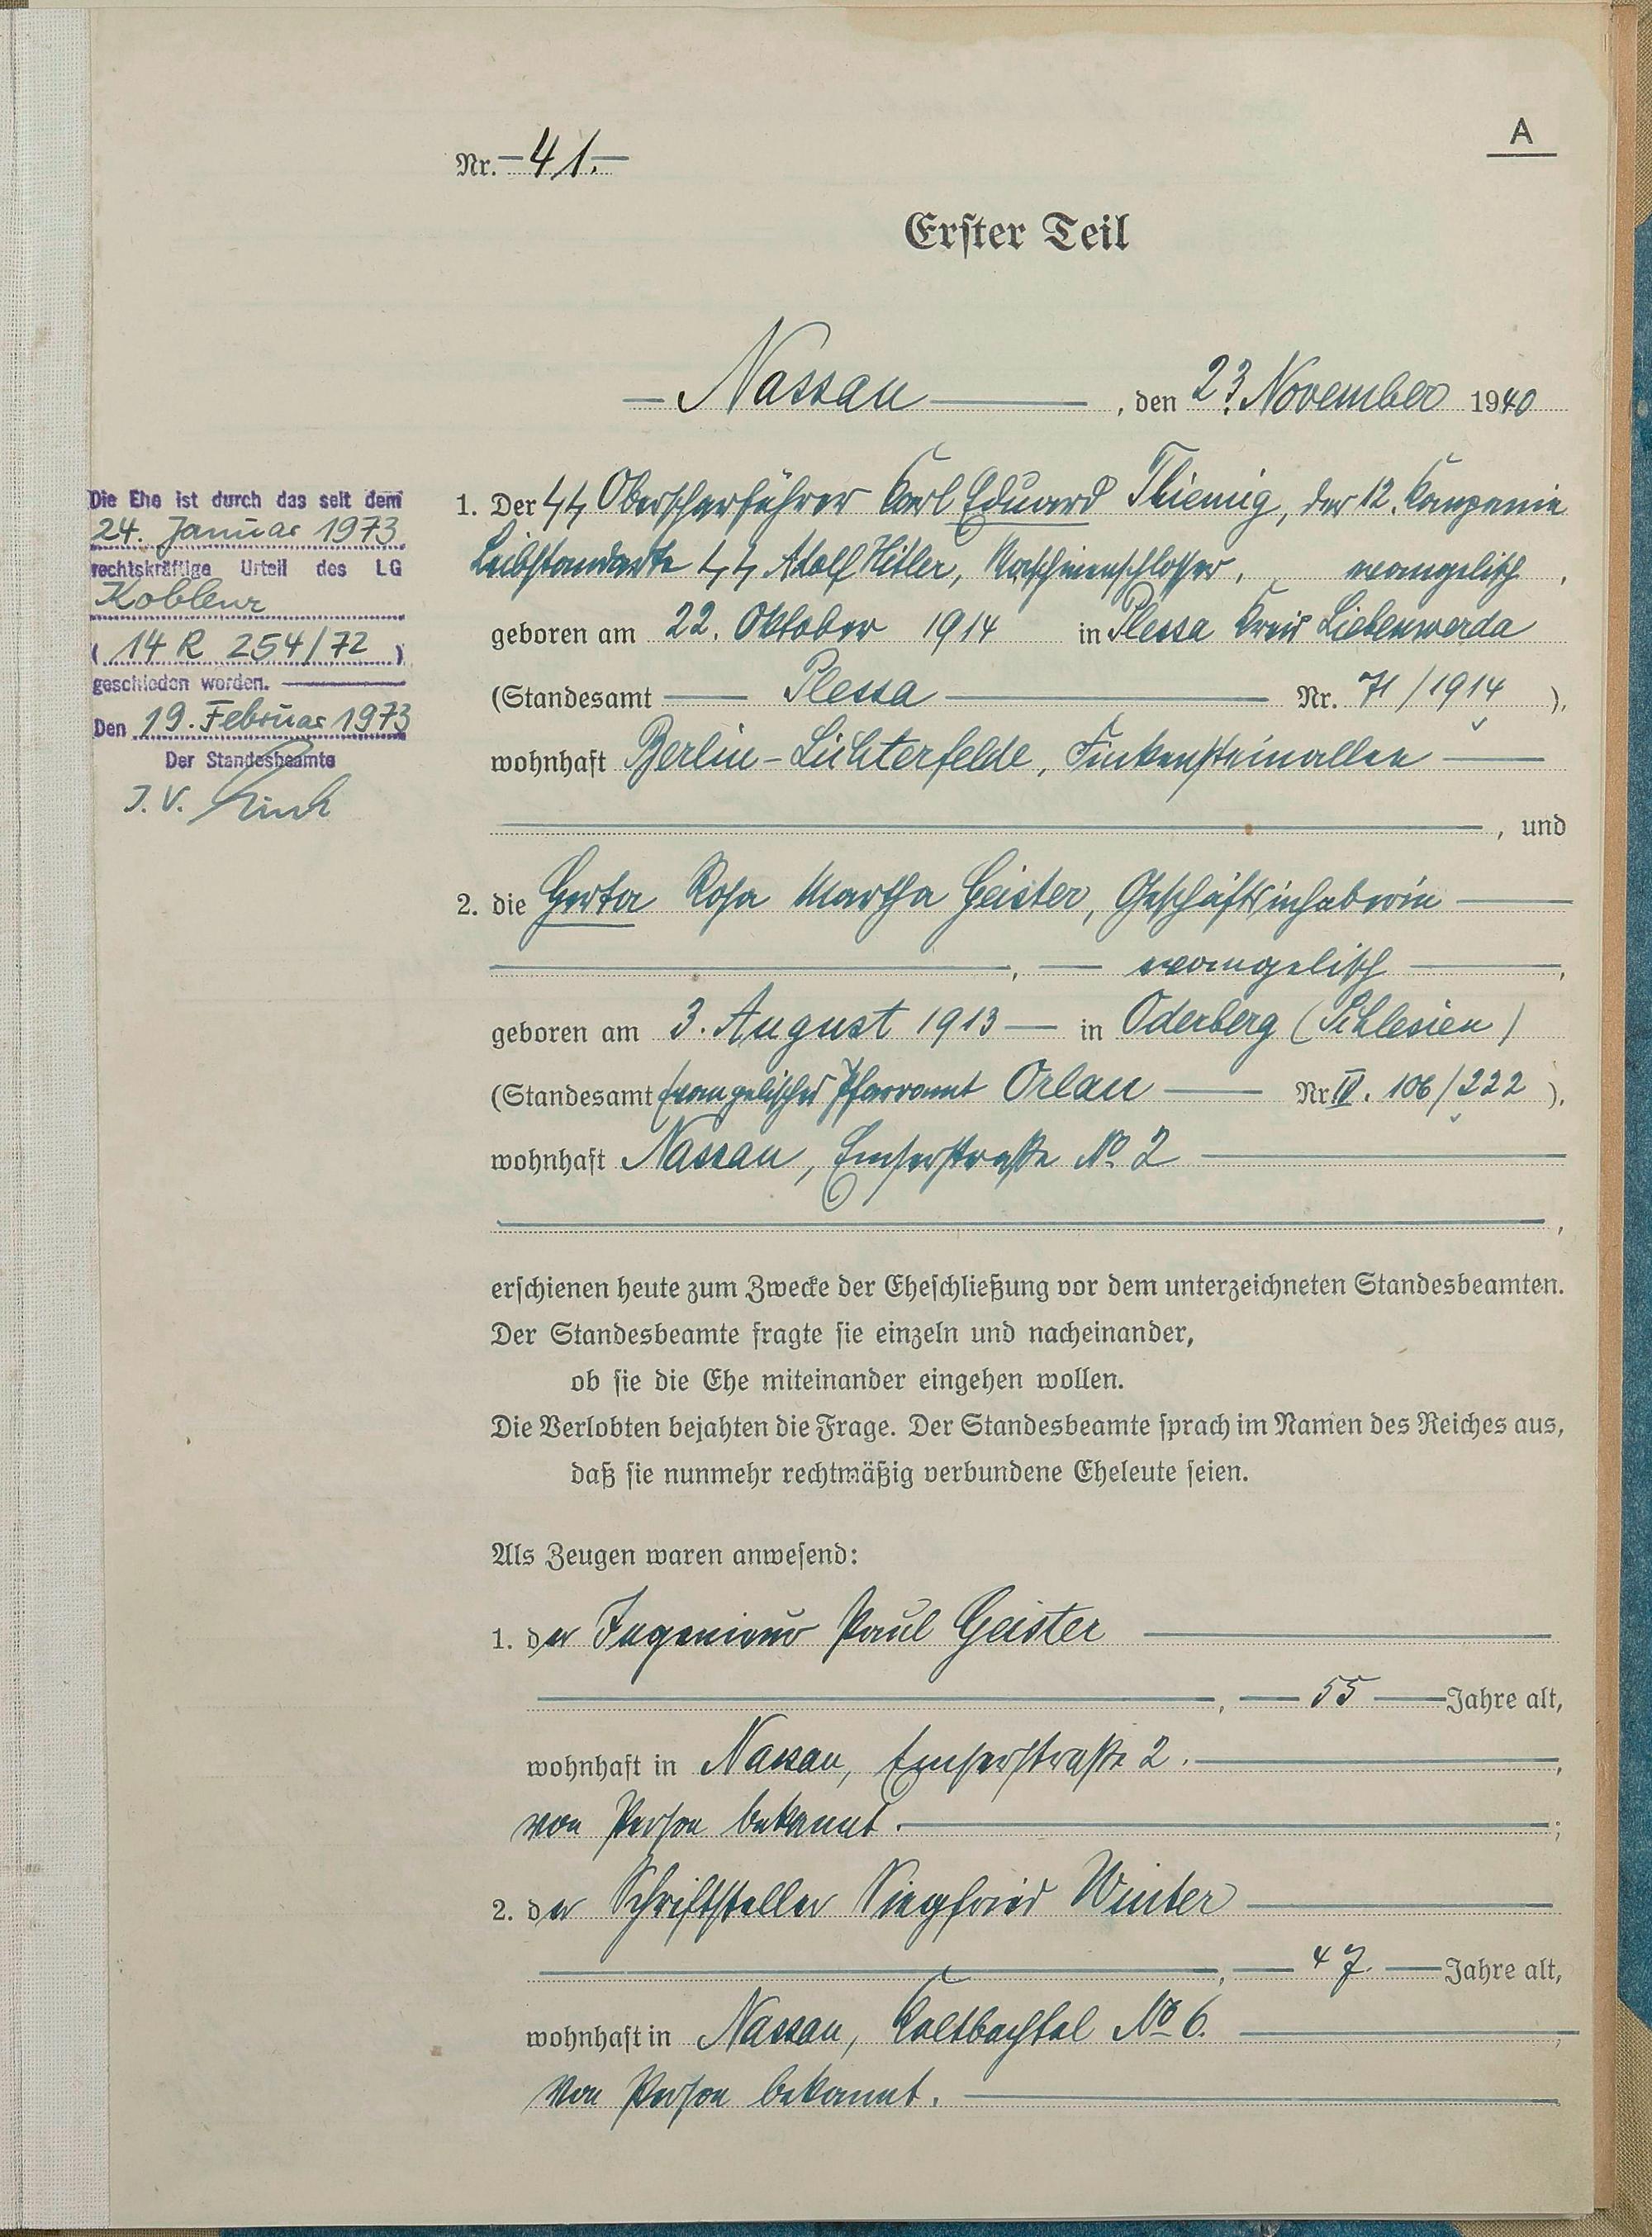 A
Nr. 41.
Erster Teil
Nassau, den 23. November 1940
Die Ehe ist durch das seit dem
24. Januar 1973
rechtskräftige Urteil des LG
Koblenz
( 14 R 254/72 )
geschieden worden.
Den 19. Februar 1973
Der Standesbeamte
I. V.
1. Der SS Oberscharführer Karl Eduard Thiemig, der 12. Kompenie
Leibstandarte SS Adolf Hitler, Maschinenschlosser, evangelisch,
geboren am 22. Oktober 1914 in Plessa Kreis Liebenwerda
(Standesamt Plessa Nr. 71/1914),
wohnhaft Berlin-Lichterfelde, Finkensteinallee
, und
2. die Gerta Rosa Martha Geister, Geschäftsinhaberin
, evangelisch,
geboren am 3. August 1913 in Oderberg (Schlesien)
(Standesamt Evangelisches Pfarramt Orlau Nr. IV. 106/222),
wohnhaft Nassau, Emserstraße No. 2
,
erschienen heute zum Zwecke der Eheschließung vor dem unterzeichneten Standesbeamten.
Der Standesbeamte fragte sie einzeln und nacheinander,
ob sie die Ehe miteinander eingehen wollen.
Die Verlobten bejahten die Frage. Der Standesbeamte sprach im Namen des Reiches aus,
daß sie nunmehr rechtmäßig verbundene Eheleute seien.
Als Zeugen waren anwesend:
1. der Ingenieur Paul Geister
, 55 Jahre alt,
wohnhaft in Nassau, Emserstraße 2.,
von Person bekannt.;
2. der Schriftsteller Siegfried Winter
, 47 Jahre alt,
wohnhaft in Nassau, Kaltbachtal No 6.,
von Person bekannt.